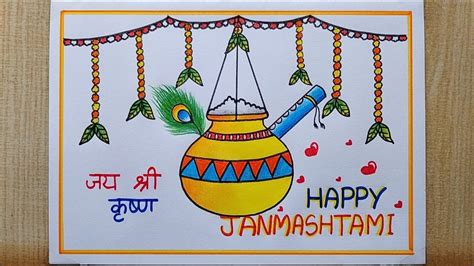 जय श्री
कृष्ण
HAPPY
JANMASHTAMI